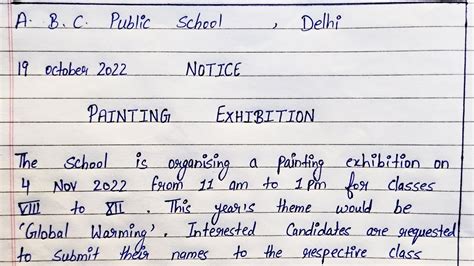 A. B. C. Public School , Delhi
19 October 2022 NOTICE
PAINTING EXHIBITION
The School is organising a painting exhibition on
4 Nov 2022 from 11 am to 1 pm for classes
VIII to XII. This year's theme would be
'Global Warming'. Interested Candidates are requested
to submit their names to the respective class